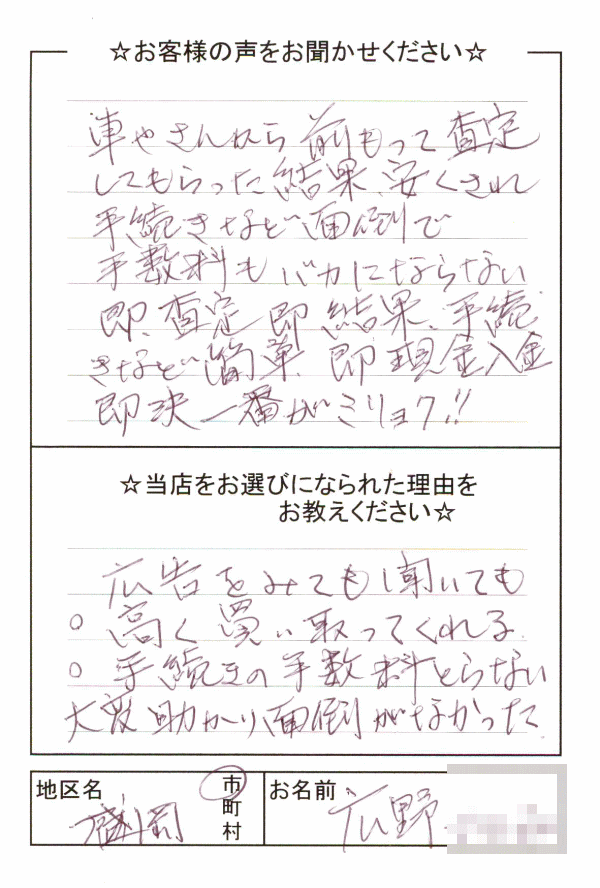 ☆お客様の声をお聞かせください☆
車やさんから前もって査定
してもらった結果、安くされ
手続きなど面倒で
手数料もバカにならない
即、査定 即 結果、手続
きなど簡単、即現金入金
即決 一番がミリョク!!
☆当店をお選びになられた理由を
お教えください☆
広告をみても聞いても
○ 高く買い取ってくれる
○ 手続きの手数料とらない
大変助かり面倒がなかった
地区名 盛岡 市町村 お名前 広野